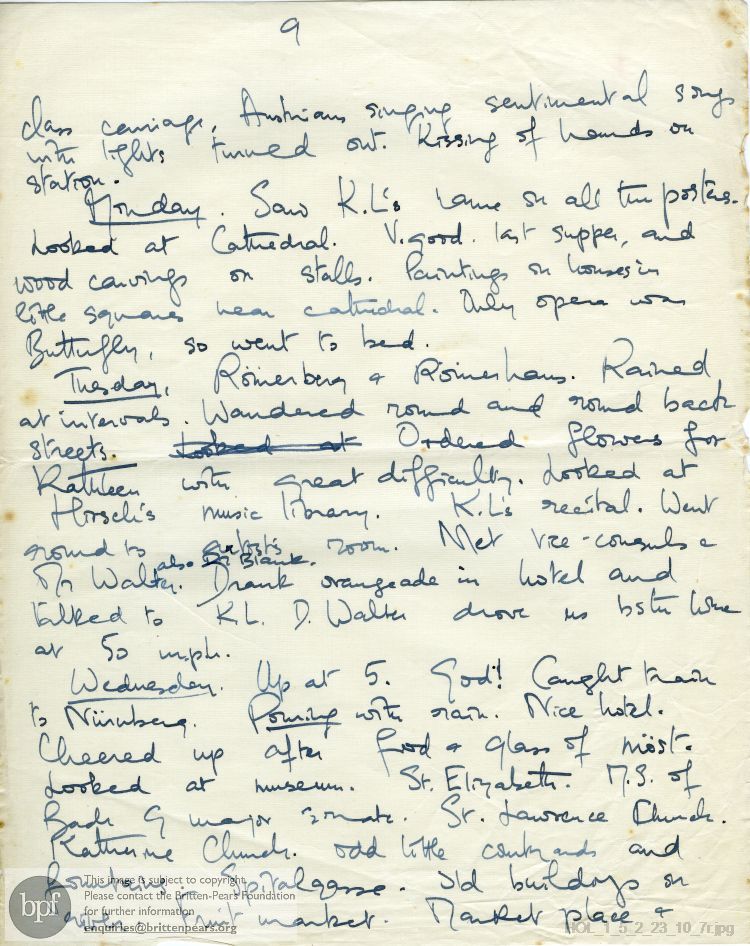 9
class carriage, Austrians singing sentimental songs
with lights turned out. Kissing of hands on
station.
Monday. Saw K.L's name on all the posters.
Looked at Cathedral. V. good. last supper, and
wood carvings on stalls. Paintings on houses in
little squares near cathedral. Only opera was
Butterfly, so went to bed.
Tuesday, Römerberg & Römerhaus. Rained
at intervals. Wandered round and round back
streets. Looked at Ordered flowers for
Kathleen with great difficulty. Looked at
Hirsch's music library. K.L's recital. Went
round to artist's room. Met vice-consuls &
also Dr Blank.
Mr Walter. Drank orangeade in hotel and
talked to K.L. D. Walter drove us both home
at 50 m.p.h.
Wednesday. Up at 5. God! Caught train
to Nürnberg. Pouring with rain. Nice hotel.
Cheered up after food & glass of möst.
Looked at museum. St. Elizabeth. M.S. of
Bach G major sonata. St. Lawrence Church.
Katherine Church. odd little courtyards and
fountains. Spitalgasse. Old buildings on
fruit market. Market place &
This image is subject to copyright.
Please contact the Britten-Pears Foundation
for further information
enquiries@brittenpears.org
bpf
HOL_1_5_2_23_10_7r.jpg